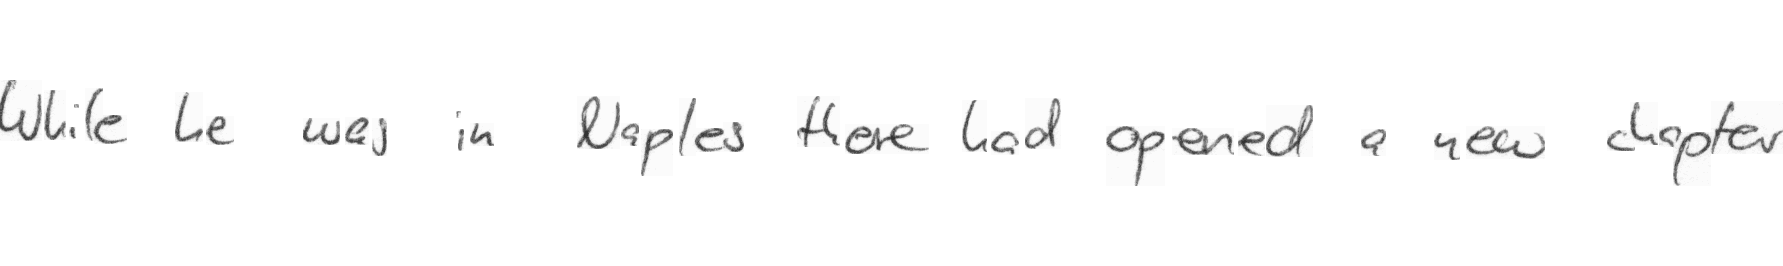 While he was in Naples there had opened a new chapter